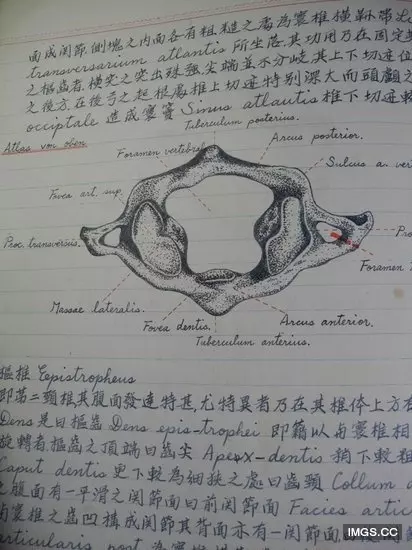 面成关節.側塊之内面各有粗糙之處為寰椎橫靱帶
transversarium atlantis 所坐落,其功用乃在固定
之樞齒者,橫突之突出殊強,尖端並不分岐,其上下切迹位
之後方在後弓之起根處,椎上切迹特別深大而頭顱
occipitale 造成寰竇 Sinus atlautis 椎下切迹
Tuberculum posterius.
Atlas von oben.
Foramen vertebral
Arcus posterior.
Fovea art. sup.
Sulcus a. ver
Proc. transversus.
Pro
Foramen
Massae lateralis.
Fovea dentis.
Arcus anterior.
Tuberculum anterius.
樞椎 Epistropheus
即第二頸椎其腹面發達特甚,尤特異者乃在其椎体上方
Dens 是曰樞齒 Dens epis-trophei 即藉以與寰椎相
旋轉者樞齒之頂端曰齒尖 Apex-dentis 稍下較粗
Caput dentis 更下較為細挾之處曰齒頸 Collum
之腹面有一平滑之関節面曰前関節面 Facies artic
與寰椎之齒凹構成関節其背面亦有一関節面
articularis post 為寰椎
IMGS.CC